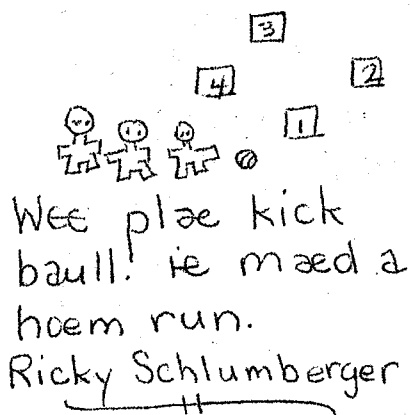 3
4 2
1
Wεε plæ kick
baull. ie mæd a
hœm run.
Ricky Schlumberger